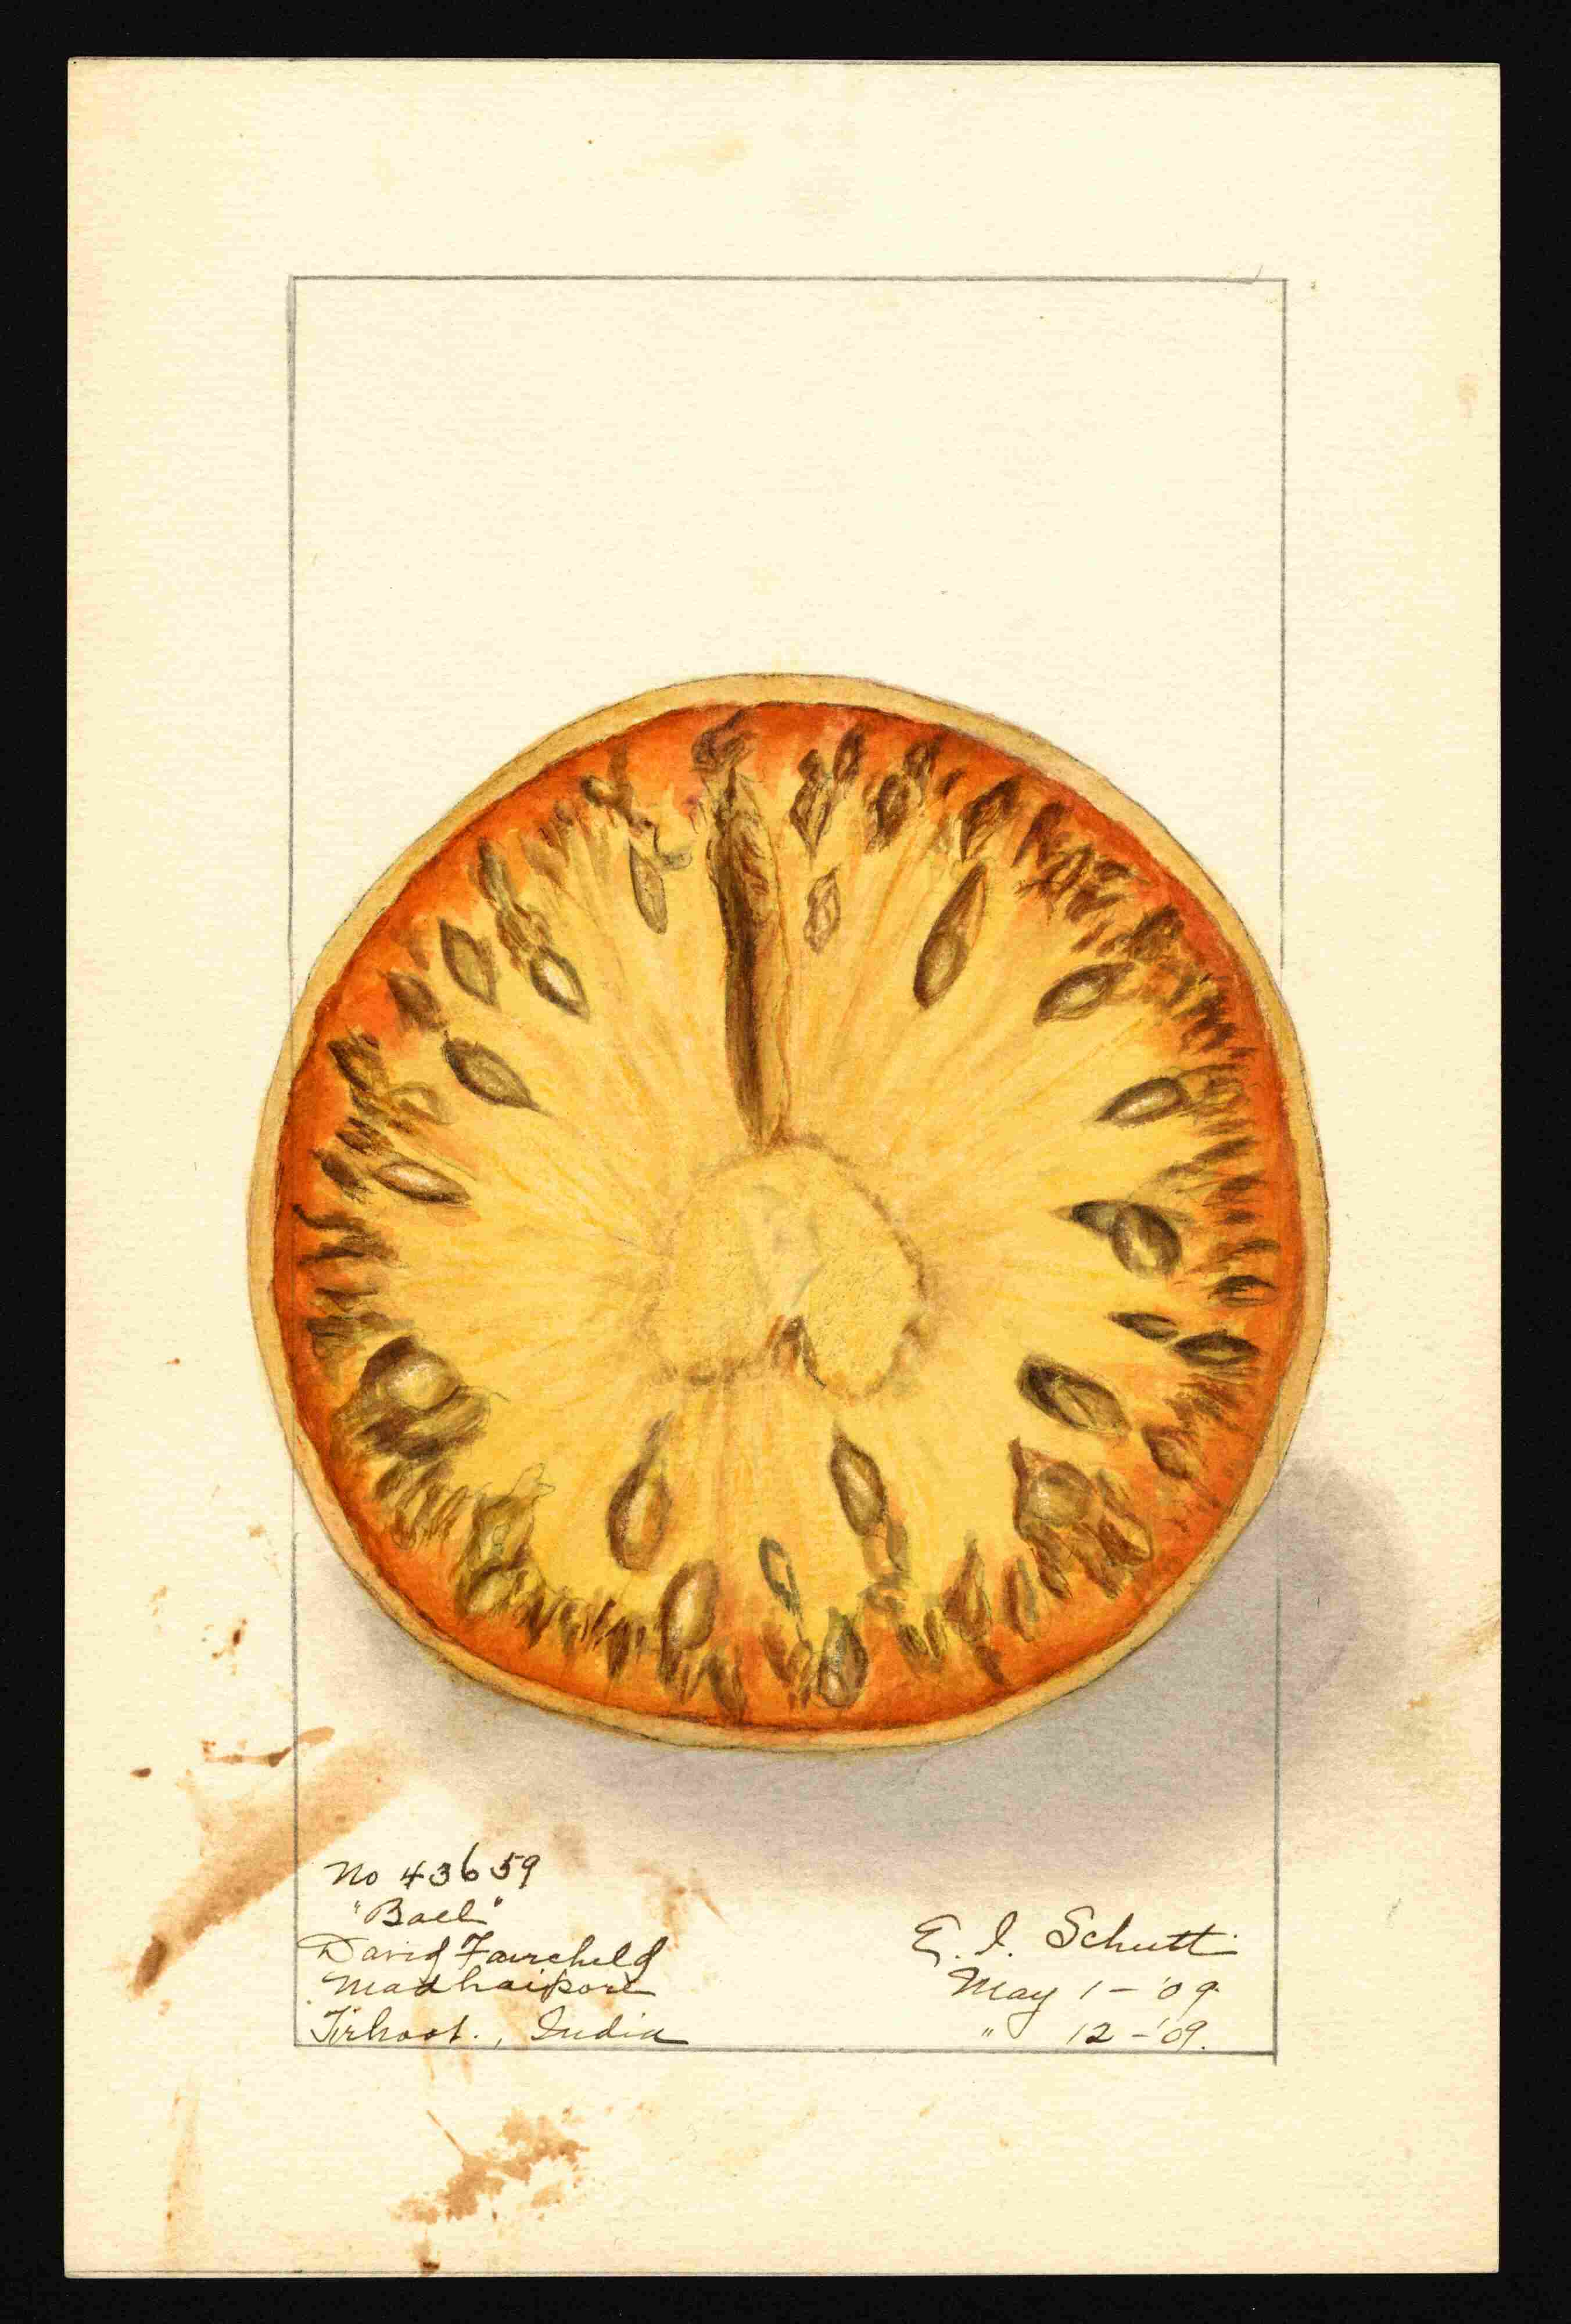 No 43659
"Bael"
David Fairchild
Madhaipore
Tirhoot., India
E. I. Schutt.
May 1 - '09
" 12 - '09.